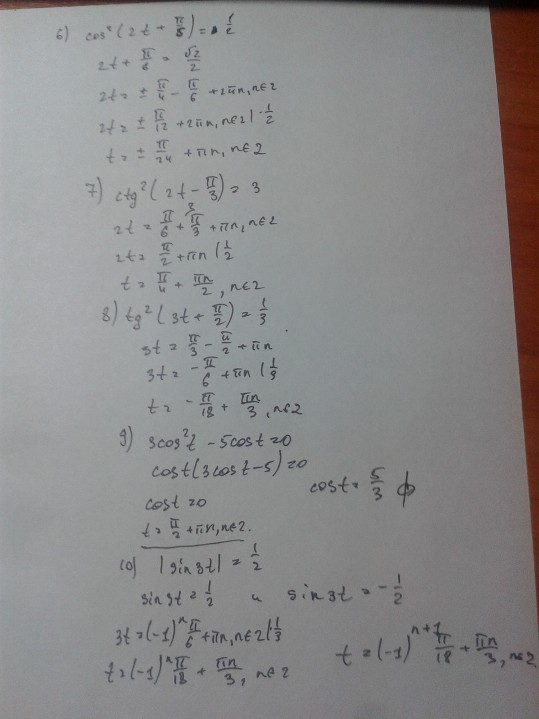 6) cos²(2t + π/8) = 1/2
2t + π/8 = √2/2
2t = ± π/4 - π/6 + 2πn, n∈Z
2t = ± π/12 + 2πn, n∈Z | · 1/2
t = ± π/24 + πn, n∈Z
7) ctg²(2t - π/3) = 3
2t = π/6 + π/3 + πn, n∈Z
2t = π/2 + πn | 1/2
t = π/4 + πn/2, n∈Z
8) tg²(3t + π/2) = 1/3
3t = π/3 - π/2 + πn
3t = -π/6 + πn | 1/3
t = -π/18 + πn/3, n∈Z
9) 3cos²t - 5cost = 0
cost(3cost - 5) = 0
cost = 0 cost = 5/3 ∅
t = π/2 + πn, n∈Z.
10) |sin3t| = 1/2
sin3t = 1/2 и sin3t = -1/2
3t = (-1)ⁿ π/6 + πn, n∈Z | · 1/3
t = (-1)ⁿ π/18 + πn/3, n∈Z t = (-1)ⁿ⁺¹ π/18 + πn/3, n∈Z